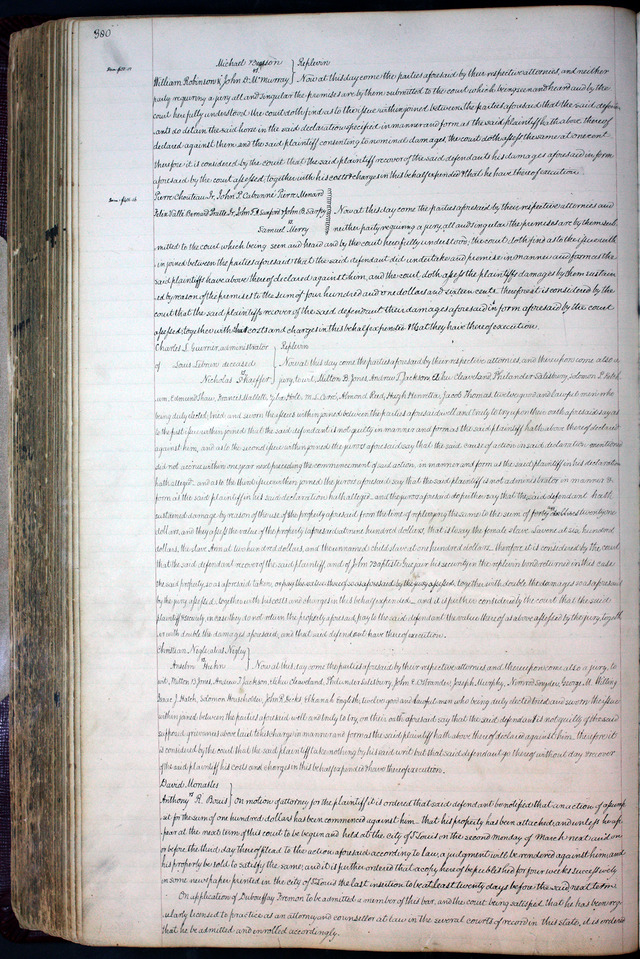 380
Michael Busson
vs
Replevin
William Robinson & John D. McMurray } Now at this day come the parties aforesaid by their respective attornies, and neither
party requiring a jury all and singular the premises are by them submitted to the court which being seen and heard and by the
court here fully understood the court doth find as to the issue within joined between the parties aforesaid that the said defen
ants do detain the said horse in the said declaration specified in manner and form as the said plaintiff hath above thereof
declared against them and the said plaintiff consenting to nominal damages, the court doth assess the same at one cent
therefore it is considered by the court that the said plaintiff recover of the said defendants his damages aforesaid in form
aforesaid by the court assessed, together with his costs & charges in this behalf expended & that he have thereof execution.
Pierre Chouteau Jr, John P. Cabanne Pierre Menard
Felix Vallé Bernard Pratte Jr John F. A. Sanford & John B. Sarpy
Now at this day come the parties aforesaid by their respective attornies and
vs
Samuel Merry
neither party requiring a jury, all and singular the premises are by them sub
mitted to the court which being seen and heard and by the court here fully understood, the court doth find as to the issue with
in joined between the parties aforesaid that the said defendant did undertake and promise in manner and form as the
said plaintiffs have above thereof declared against him, and the court doth assess the plaintiffs damages by them sustain
ed by reason of the premises to the sum of four hundred and one dollars and sixteen cents. therefore it is considered by the
court that the said plaintiffs recover of the said defendant their damages aforesaid in form aforesaid by the court
assessed, together with their costs and charges in this behalf expended & that they have thereof execution.
Charles S. administrator
Replevin
of Louis deceased
Now at this day come the parties aforesaid by their respective attornies, and thereupon come also a
vs
Nicholas Shaffer
jury, to wit, Milton B. Jones Andrew J. Jackson, Elihu Cleaveland, Philander Salisbury, Solomon P.
um, Edmund Shaw, Francis Holt, M. L. Almond Reid, Hugh Jacob Thomas twelve good and lawful men who
being duly elected, tried and sworn the issues within joined between the parties aforesaid well and truly to try, upon their oath aforesaid say as
to the first issue within joined that the said defendant is not guilty in manner and form as the said plaintiff hath above thereof declared
against him, and as to the second issue within joined the jurors aforesaid say that the said cause of action in said declaration mentioned
did not accrue within one year next preceding the commencement of said action, in manner and form as the said plaintiff in his declaration
hath alleged, and as to the third issue within joined the jurors aforesaid say that the said plaintiff is not administrator in manner &
form as the said plaintiff in his said declaration hath alleged, and the jurors aforesaid do further say that the said defendant hath
sustained damage by reason of the use of the property aforesaid from the time of replevying the same to the sum of twenty one
dollars, and they assess the value of the property aforesaid at nine hundred dollars, that is to say the female slave at six hundred
dollars, the slave Ann at two hundred dollars, and the unnamed child slave at one hundred dollars. therefore it is considered by the court
that the said defendant recover of the said plaintiff, and of John Baptiste his security in the replevin bond returned in this case
the said property, so as aforesaid taken, or pay the value thereof so as aforesaid by the jury assessed, together with double the damages so as aforesaid
by the jury assessed, together with his costs and charges in this behalf expended and it is further considered by the court that the said
plaintiff & security in case they do not return the property aforesaid, pay to the said defendant the value thereof as above assessed by the jury, togeth
er with double the damages aforesaid, and that said defendant have thereof execution.
Christian Nigly alias Nigley
vs
Anselm
Now at this day come the parties aforesaid by their respective attornies and thereupon come also a jury, to
wit, Milton B. Jones, Andrew J. Jackson, Elihu Cleaveland, Philander Salisbury, John Ostrander, Joseph Murphy, Nimrod Snyder, George M.
Isaac J. Hatch, Solomon Householder, John R. English, twelve good and lawful men who being duly elected tried and sworn the issue
within joined between the parties aforesaid well and truly to try, on their oath aforesaid say that the said defendant is not guilty of the said
supposed grievances above laid to his charge in manner and form as the said plaintiff hath above thereof declared against him, therefore it
is considered by the court that the said plaintiff take nothing by his said writ but that said defendant go thereof without day & recover
of the said plaintiff his costs and charges in this behalf expended & have thereof execution.
David Monastes
vs
Anthony R. Bouis } On motion of attorney for the plaintiff it is ordered that said defendant be notified that an action of assump
sit for the sum of one hundred dollars has been commenced against him that his property has been attached, and unless he ap
pear at the next term of this court to be begun and held at the city of St Louis on the second Monday of March next and on
or before the third day thereof plead to the action aforesaid according to law, a judgment will be rendered against him and
his property be sold to satisfy the same; and it is further ordered that a copy hereof be published for four weeks successively
in some newspaper printed in the city of St Louis the last insertion to be at least twenty days before the said next term
On application of Dubouffay Fremon to be admitted a member of this bar, and the court being satisfied that he has been reg
ularly licensed to practice as an attorney and counsellor at law in the several courts of record in this state, it is ordered
that he be admitted and enrolled accordingly.